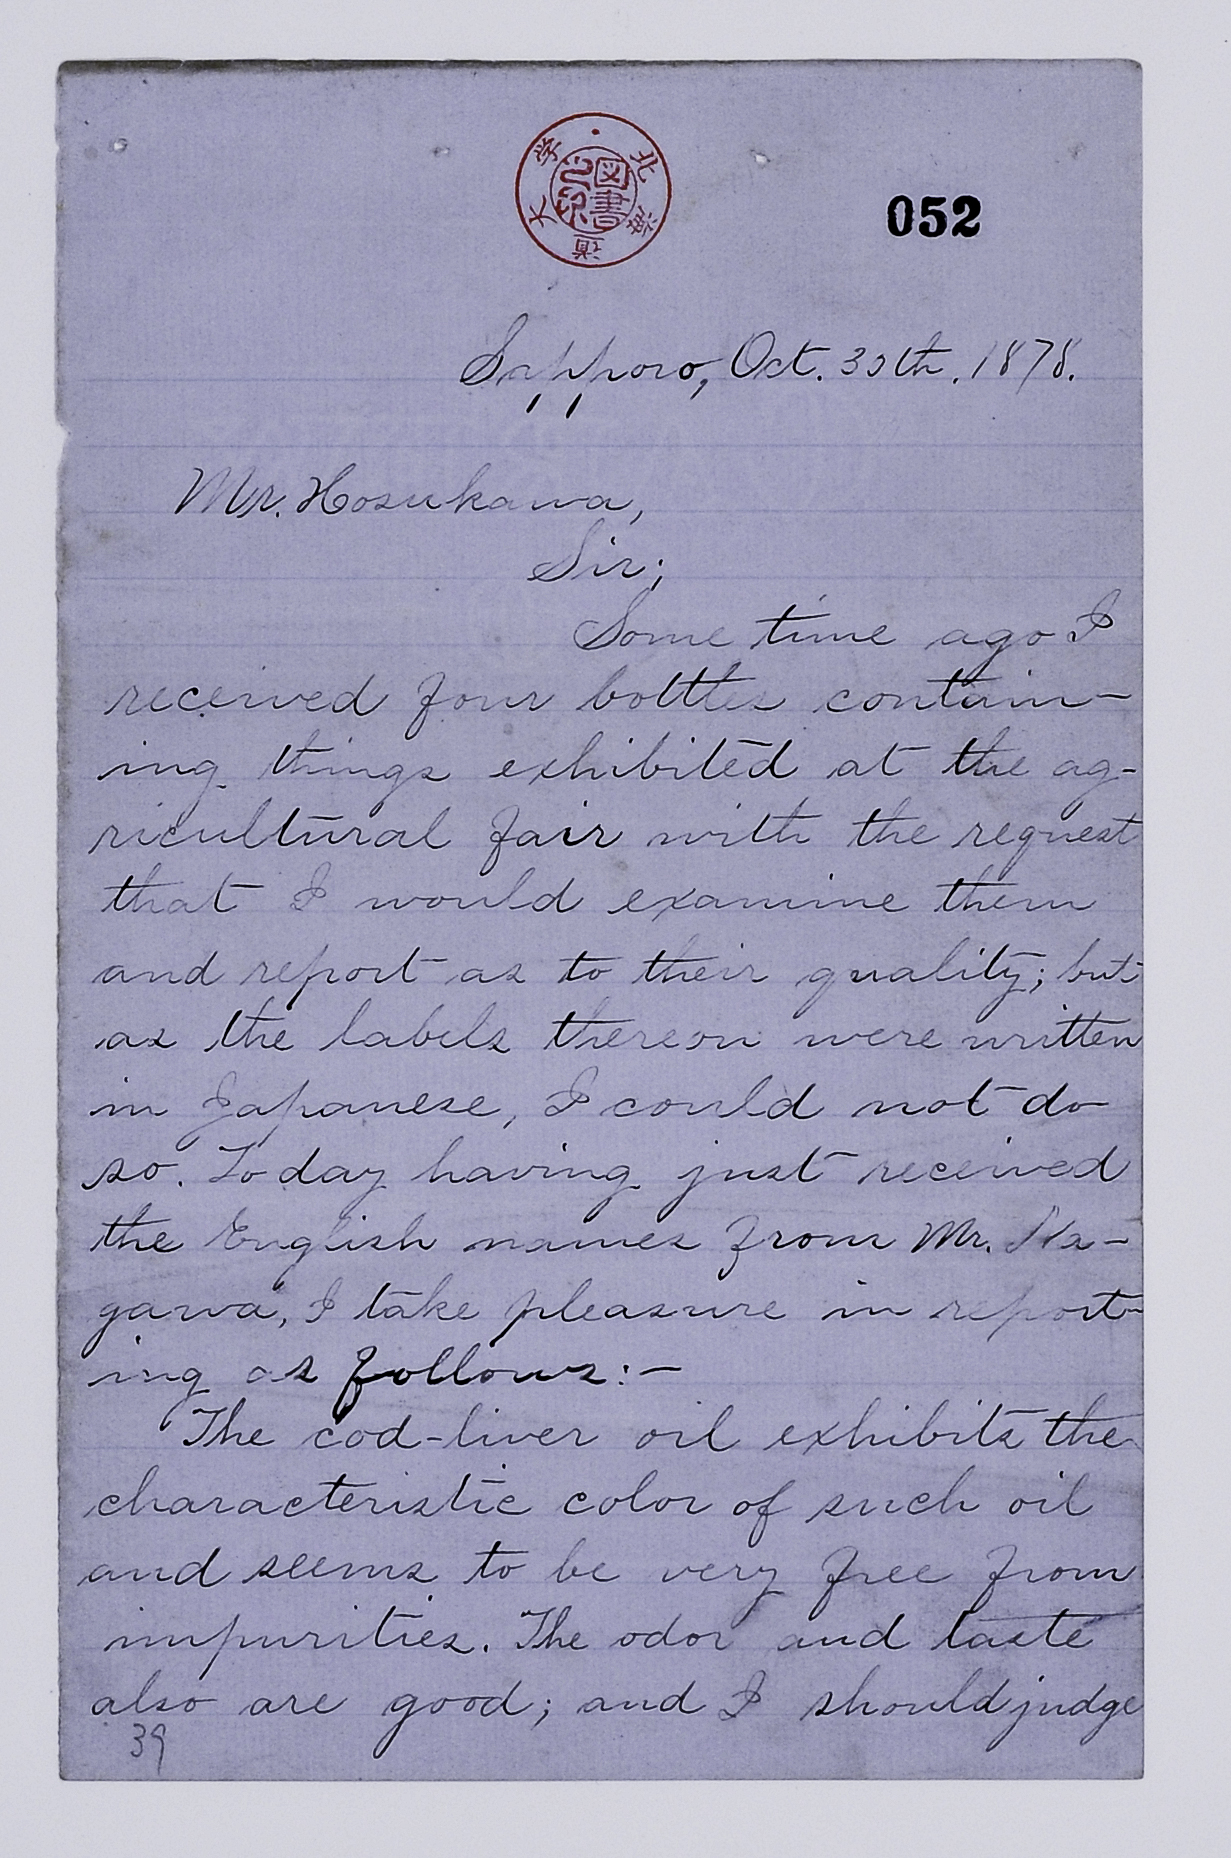 北海道大学
図書之印
052
Sapporo, Oct. 30th. 1878.
Mr. Hosukawa,
Sir;
Some time ago I
received four bottles contain-
ing things exhibited at the ag-
ricultural fair with the request
that I would examine them
and report as to their quality; but
as the labels thereon were written
in Japanese, I could not do
so. To day having just received
the English names from Mr.
gawa, I take pleasure in report-
ing as follows:-
The cod-liver oil exhibits the
characteristic color of such oil
and seems to be very free from
impurities. The odor and taste
also are good; and I should judge
39